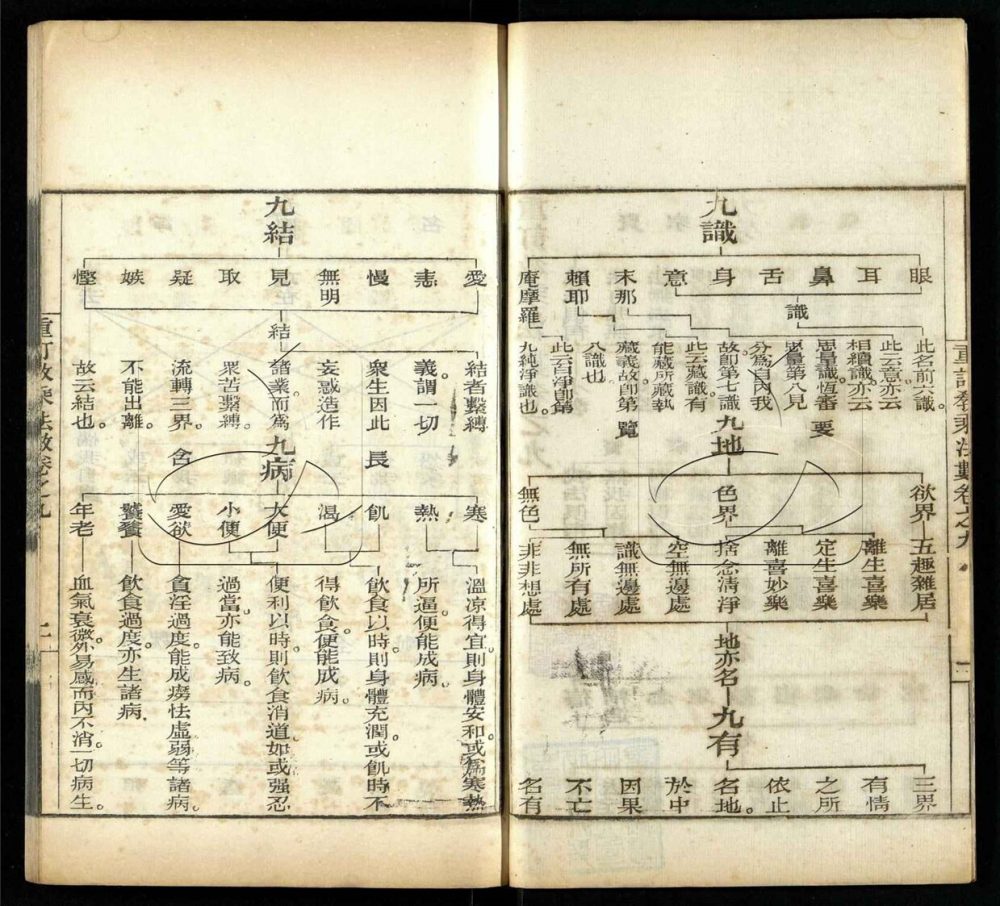 九識
眼
耳
鼻
舌
身
意
末那
賴耶
庵摩羅
識
此名前六識
此云意亦云
相續識亦云
思量識恆審
思量第八見
分爲自內我
故卽第七識
此云藏識有
能藏所藏執
藏義故卽第
八識也
此云淸淨卽第
九純淨識也。
要
覽
九地
欲界
色界
無色
五趣雜居
離生喜樂
定生喜樂
離喜妙樂
捨念淸淨
空無邊處
識無邊處
無所有處
非非想處
地亦名
九有
三界
有情
之所
依止
名地。
於中
因果
不亡
名有
重訂敎乘法數卷之九
九結
愛
恚
慢
無明
見
取
疑
嫉
慳
結
結者繫縛
義謂一切
衆生因此
妄惑造作
諸業而爲
衆苦繫縛。
流轉三界。
不能出離。
故云結也。
長
含
九病
寒
熱
飢
渴
大便
小便
愛欲
饕餮
年老
溫涼得宜則身體安和或爲寒熱
所逼。便能成病。
飲食以時。則身體充潤。或飢時不
得飲食。便能成病。
便利以時。則飲食消道如或强忍
過當。亦能致病。
貪淫過度。能成癆怯虛弱等諸病。
飲食過度。亦生諸病
血氣衰微。外易感而內不消。一切病生。
重訂敎乘法數卷之九
二